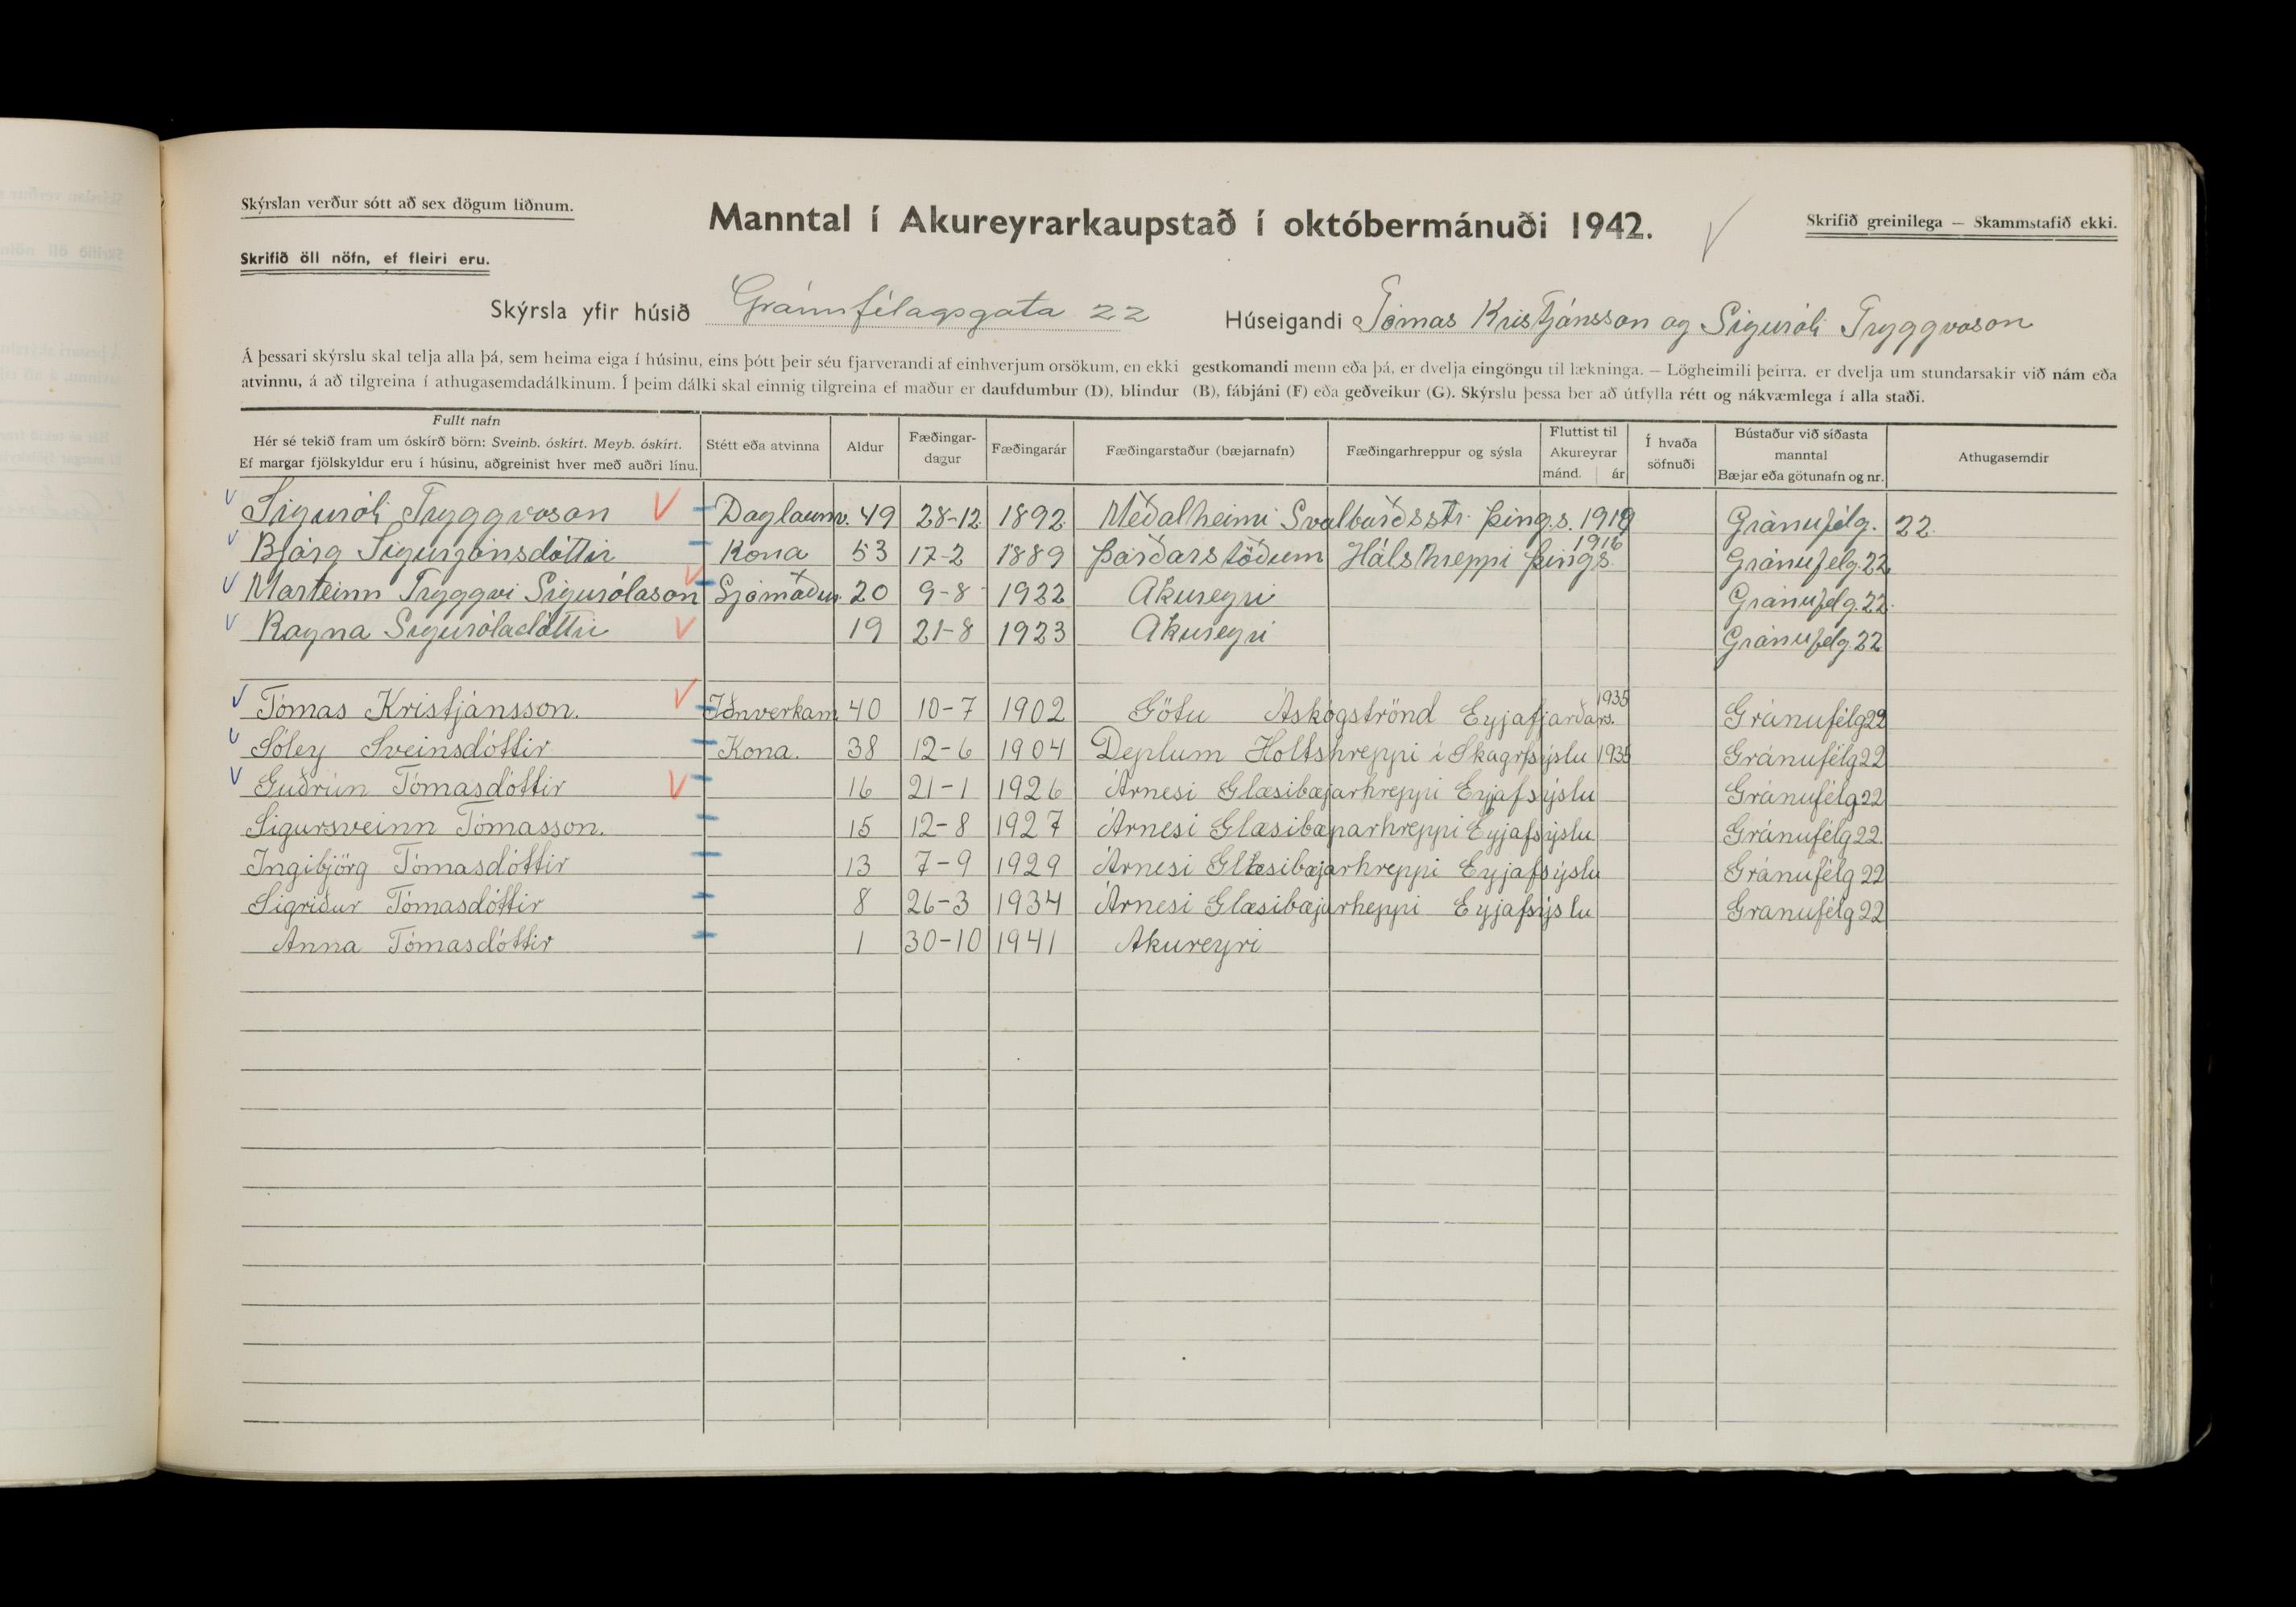 Skýrslan verður sótt að sex dögum liðnum.
Manntal í Akureyrarkaupstað í októbermánuði 1942.
Skrifið greinilega — Skammstafið ekki.
Skrifið öll nöfn, ef fleiri eru.
Skýrsla yfir húsið Gránufélagsgata 22 Húseigandi Tómas Kristjánsson og Siguróli Tryggvason
Á þessari skýrslu skal telja alla þá, sem heima eiga í húsinu, eins þótt þeir séu fjarverandi af einhverjum orsökum, en ekki gestkomandi menn eða þá, er dvelja eingöngu til lækninga. — Lögheimili þeirra, er dvelja um stundarsakir við nám eða
atvinnu, á að tilgreina í athugasemdadálkinum. Í þeim dálki skal einnig tilgreina ef maður er daufdumbur (D), blindur (B), fábjáni (F) eða geðveikur (G). Skýrslu þessa ber að útfylla rétt og nákvæmlega í alla staði.
Fullt nafn
Hér sé tekið fram um óskírð börn: Sveinb. óskírt. Meyb. óskírt.
Ef margar fjölskyldur eru í húsinu, aðgreinist hver með auðri línu.
Stétt eða atvinna
Aldur
Fæðingar-
dagur
Fæðingarár
Fæðingarstaður (bæjarnafn)
Fæðingarhreppur og sýsla
Fluttist til
Akureyrar
mánd. ár
Í hvaða
söfnuði
Bústaður við síðasta
manntal
Bæjar eða götunafn og nr.
Athugasemdir
Siguróli Tryggvason Daglaunv. 49 28-12 1892 Meðalheimi Svalbarðsstr. Þing.s. 1919 Gránufélg. 22.
Bjárg Sigurjónsdóttir Kona 53 17-2 1889 Þórðarstöðum Hálshreppi Þings. 1916 Gránufelg. 22
Marteinn Tryggvi Sigurólason Sjómaður 20 9-8 1922 Akureyri Gránufelg. 22.
Ragna Siguróladóttir 19 21-8 1923 Akureyri Gránufelg. 22
Tómas Kristjánsson. Iðnverkam. 40 10-7 1902 Götu Áskógströnd Eyjafjarðars. 1935 Gránufélg 22
Sóley Sveinsdóttir Kona. 38 12-6 1904 Deplum Holtshreppi í Skagrfsýslu 1935 Gránufélg 22
Guðrún Tómasdóttir 16 21-1 1926 Árnesi Glæsibæjarhreppi Eyjafsýslu Gránufélg 22
Sigursveinn Tómasson. 15 12-8 1927 Árnesi Glæsibæjarhreppi Eyjafsýslu Gránufélg 22.
Ingibjörg Tómasdóttir 13 7-9 1929 Árnesi Glæsibæjarhreppi Eyjafsýslu Gránufélg 22
Sigríður Tómasdóttir 8 26-3 1934 Árnesi Glæsibæjarheppi Eyjafsýslu Gránufélg 22
Anna Tómasdóttir 1 30-10 1941 Akureyri